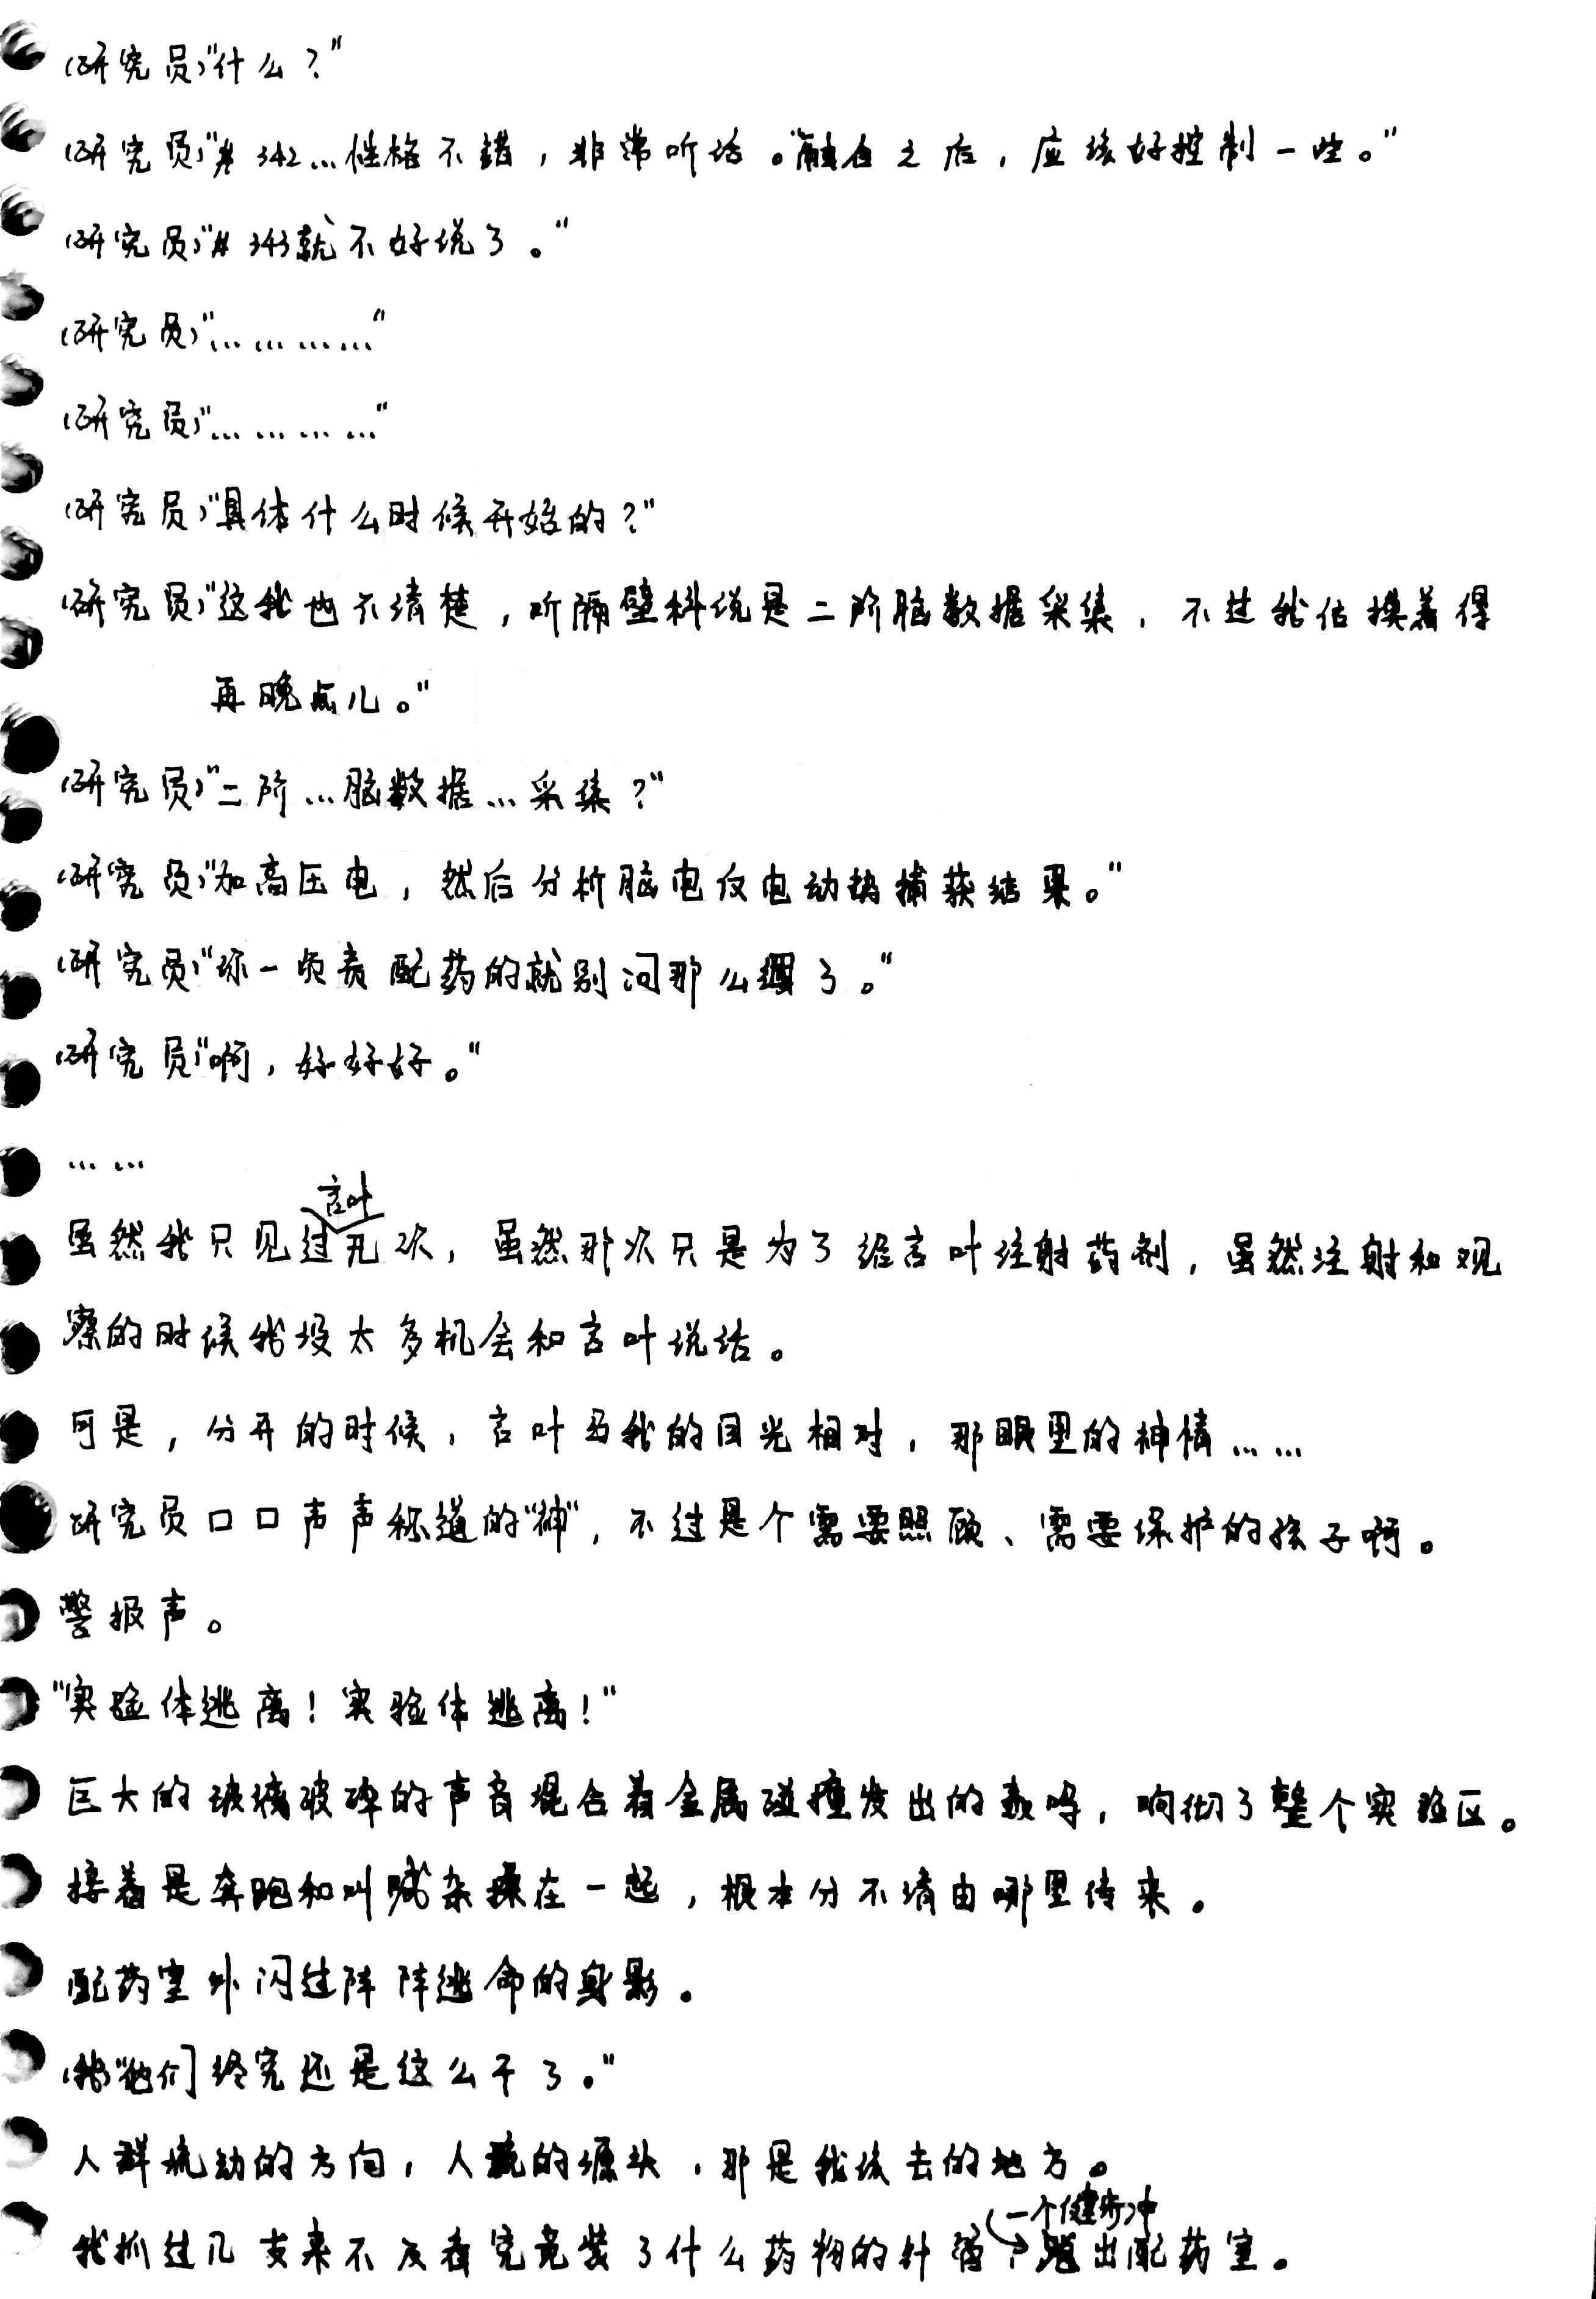 (研究员)"什么?"
(研究员)"# 342…性格不错,非常听话。融合之后,应该好控制一些。"
(研究员)"# 343就不好说了。"
(研究员)"… … … …"
(研究员)"… … … …"
(研究员)"具体什么时候开始的?"
(研究员)"这我也不清楚,听隔壁科说是二阶脑数据采集,不过我估摸着得
再晚点儿。"
(研究员)"二阶…脑数据…采集?"
(研究员)"加高压电,然后分析脑电仪电动势捕获结果。"
(研究员)"你一负责配药的就别问那么细了。"
(研究员)"啊,好好好。"
… …
言叶
虽然我只见过几次,虽然那次只是为了给言叶注射药剂,虽然注射和观
察的时候我没太多机会和言叶说话。
可是,分开的时候,言叶与我的目光相对,那眼里的神情… …
研究员口口声声称道的"神",不过是个需要照顾、需要保护的孩子啊。
警报声。
"实验体逃离!实验体逃离!"
巨大的玻璃破碎的声音混合着金属碰撞发出的轰鸣,响彻了整个实验区。
接着是奔跑和叫喊杂糅在一起,根本分不清由哪里传来。
配药室外闪过阵阵逃命的身影。
(我)"他们终究还是这么干了。"
人群流动的方向,人流的源头,那是我该去的地方。
一个健步冲
我抓过几支来不及看究竟装了什么药物的针管,出配药室。